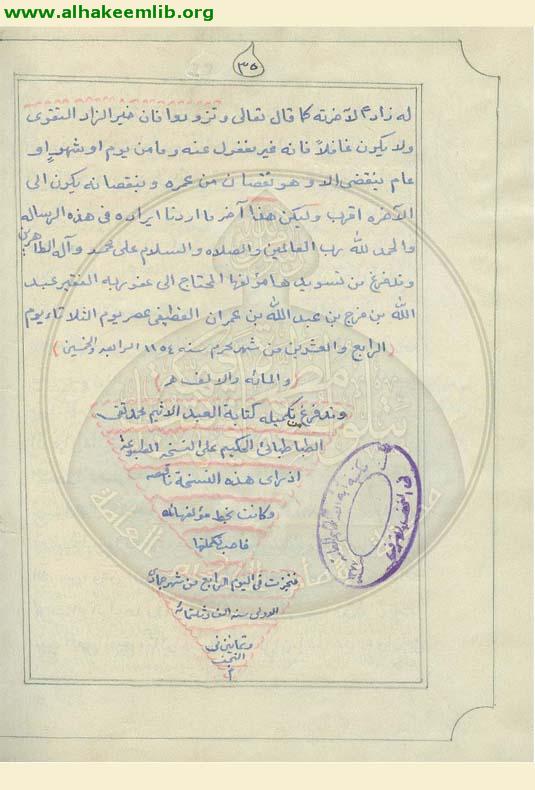 www.alhakeemlib.org
٣٥
له زادا لآخرته كما قال تعالى وتزودوا فان خير الزاد التقوى
ولا يكون غافلاً فانه غير مغفول عنه وما من يوم او شهر او
عام ينقضي الا وهو نقصان من عمره وبنقصانه يكون الى
الآخرة اقرب وليكن هذا آخر ما اردنا ايراده في هذه الرساله
والحمد لله رب العالمين والصلاه والسلام على محمد وآله الطاهرين
وقد فرغ من تسويدها مؤلفها المحتاج الى عفو ربه الفقير عبد
الله بن فرج بن عبد الله بن عمران القطيفي عصر يوم الثلاثاء يوم
الرابع والعشرين من شهر محرم سنه ١١٥٤ الرابعه والخمسين
والمائه والالف هـ
وقد فرغ بتكميله كتابة العبد الاثيم محمد تقي
الطباطبائي الحكيم على النسخة المطبوعة
اذ راى هذه النسخة ناقصه
وكانت بخط مؤلفها
فاحب تكملتها
فنجزت في اليوم الرابع من شهر جمادى
الاولى سنه الف وثلثمائة
وثمانين في
النجف